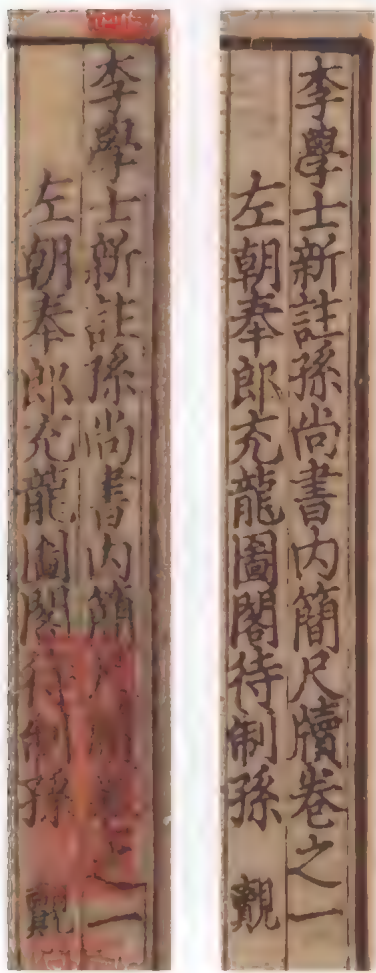 李學士新註孫尚書内簡尺牘卷之一
左朝奉郎充龍圖閣待制孫 覿
李學士新註孫尚書内簡尺牘卷之一
左朝奉郎充龍圖閣待制孫 覿